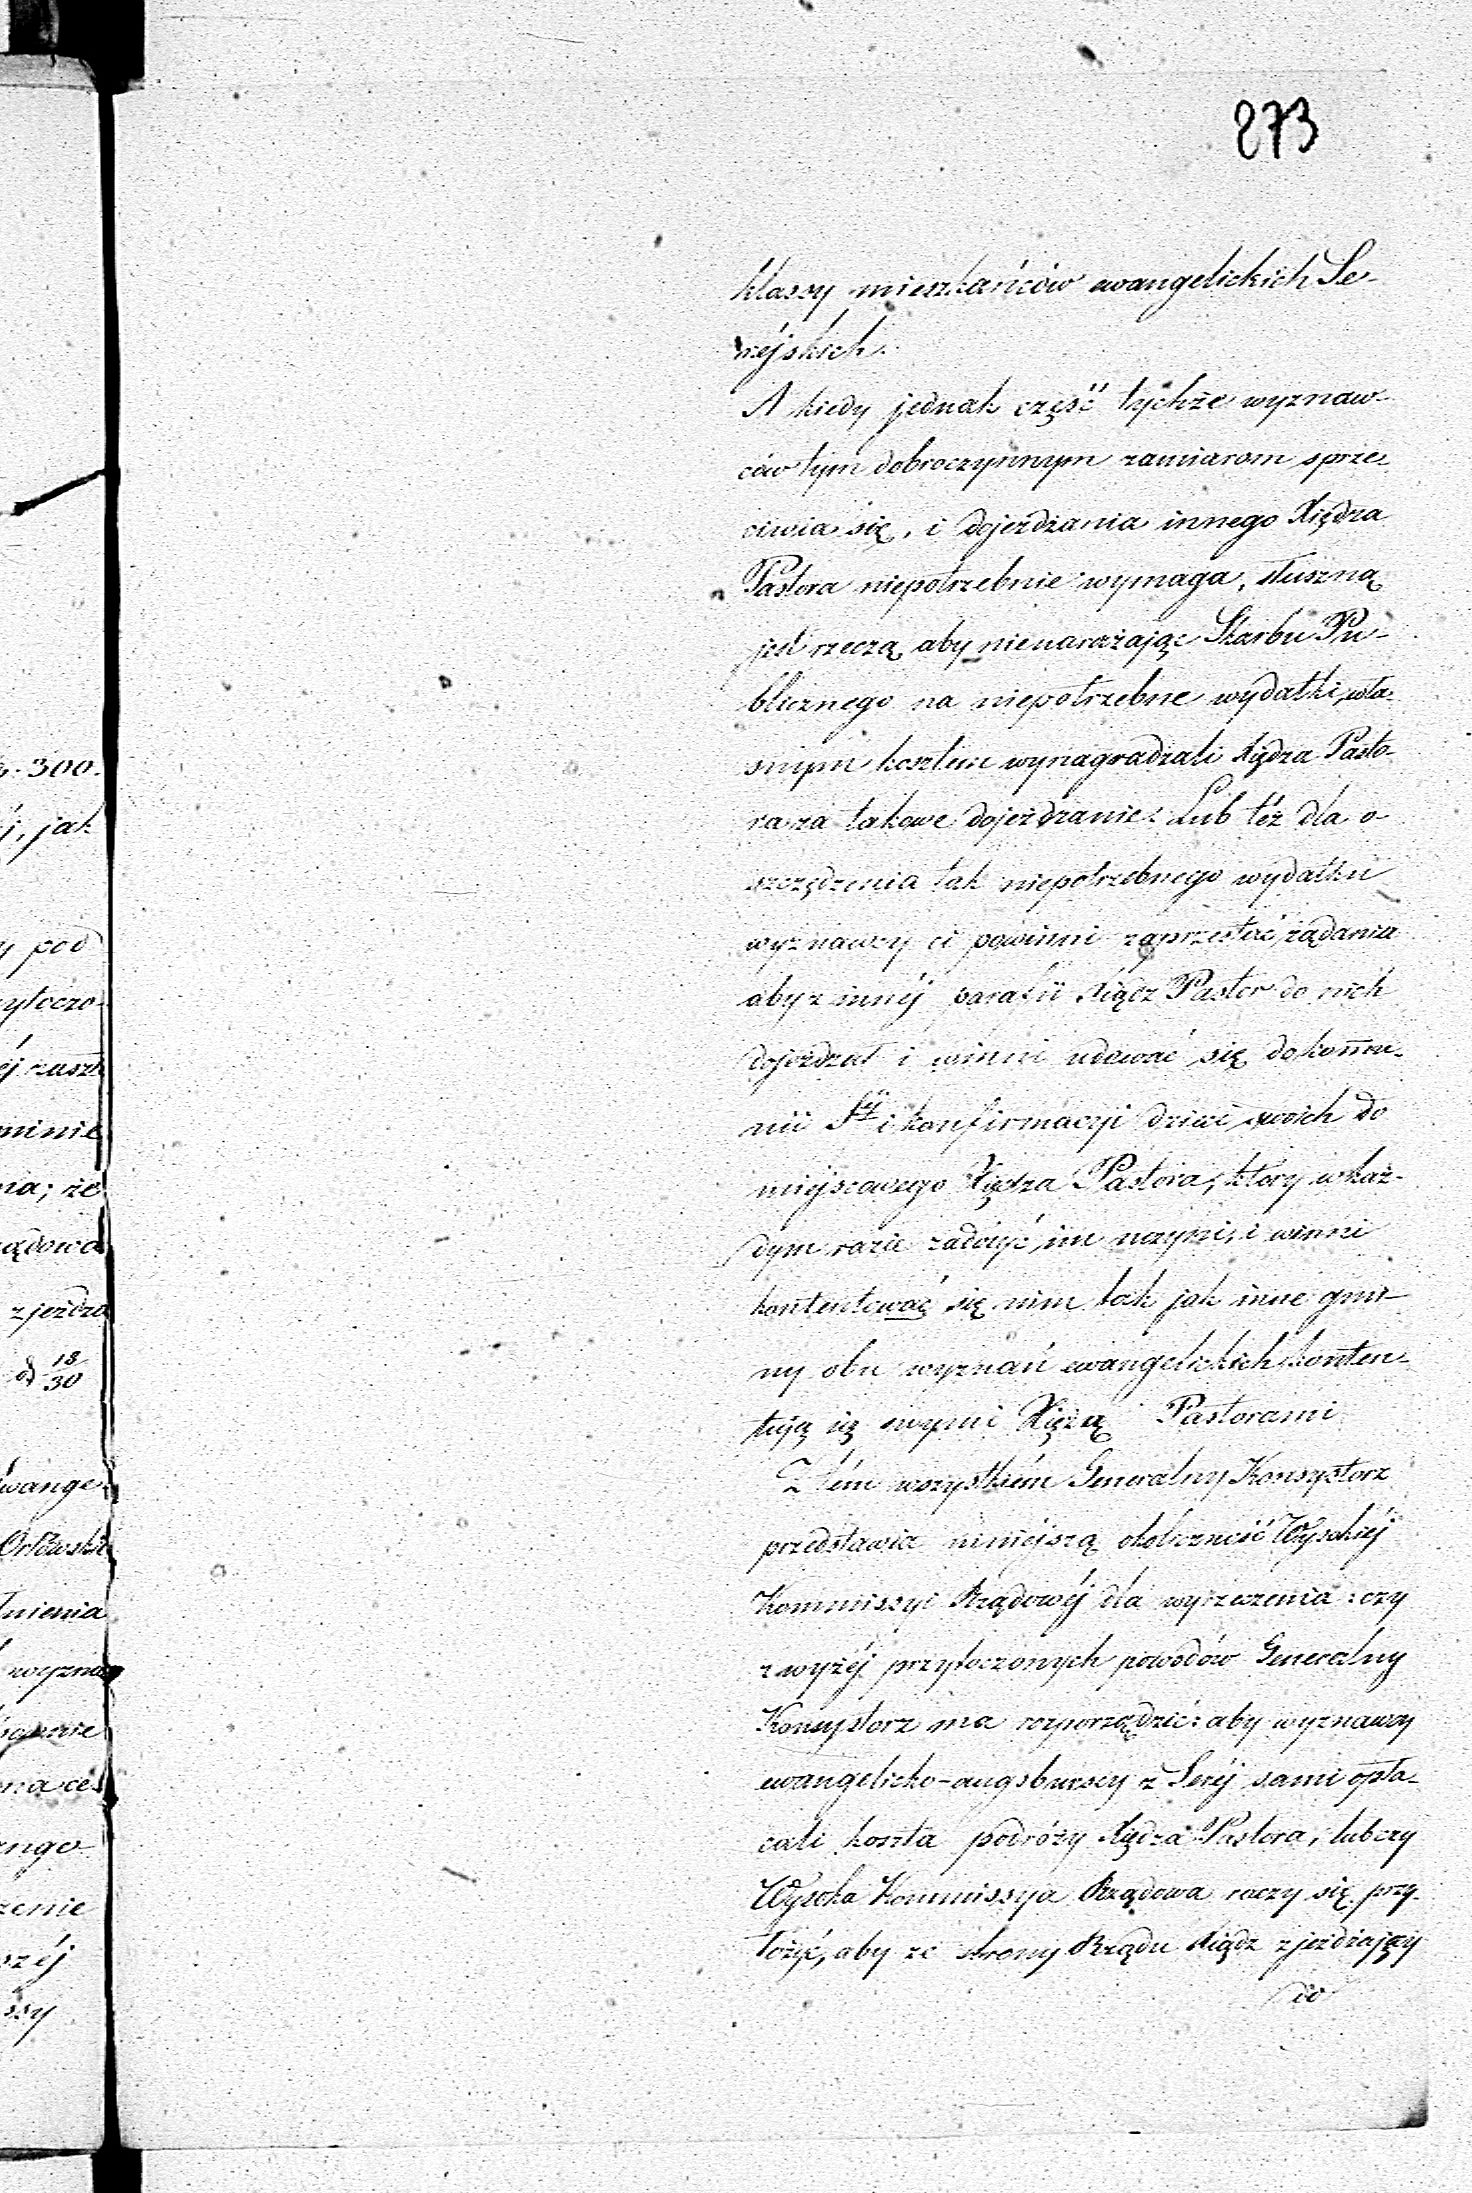 873
klassy mieszkańców ewangelickich Se-
rejskich.
A kiedy jednak część tychże wyznaw-
ców tym dobroczynnym zamiarom sprze-
ciwia się, i dojeżdżania innego Xiędza
Pastora niepotrzebnie wymaga, słuszną
jest rzeczą aby nienarażając Skarbu Pu-
blicznego na niepotrzebne wydatki, wła-
snym kosztem wynagradzali Xiędza Pasto-
ra za takowe dojeżdżanie: Lub też dla o-
szczędzenia tak niepotrzebnego wydatku
wyznawcy ci powinni zaprzestać żądania
aby z innéj parafii Xiądz Pastor do nich
dojeżdżał i winni udawać się do kommu-
nii Sty i konfirmacyi dzieci swoich do
miejscowego Xiędza Pastora, który w każ-
dym razie zadosyć im uczyni, i winni
kontentować się nim tak jak inne gmi-
ny obu wyznań ewangelickich konten-
tują się swymi Xiężą Pastorami
Z tém wszystkiém Generalny Konsystorz
przedstawia niniéjszą okoliczność Wysokiéj
Kommissyi Rządowéj dla wyrzeczenia: czy
z wyżéj przytoczonych powodów Generalny
Konsystorz ma rozporządzić: aby wyznawcy
ewangelicko-augsburscy z Seréj sami opła-
cali koszta podróży Xiędza Pastora, lub czy
Wysoka Kommissya Rządowa raczy się przy-
łożyć, aby ze strony Rządu Xiądz zjeżdżający
do
300.
jak
pod
ytoczo-
minie
że
zjeżdża
od 18/30
ewange-
Orłowski
nienia
wyzna
zenie
széj
ssy